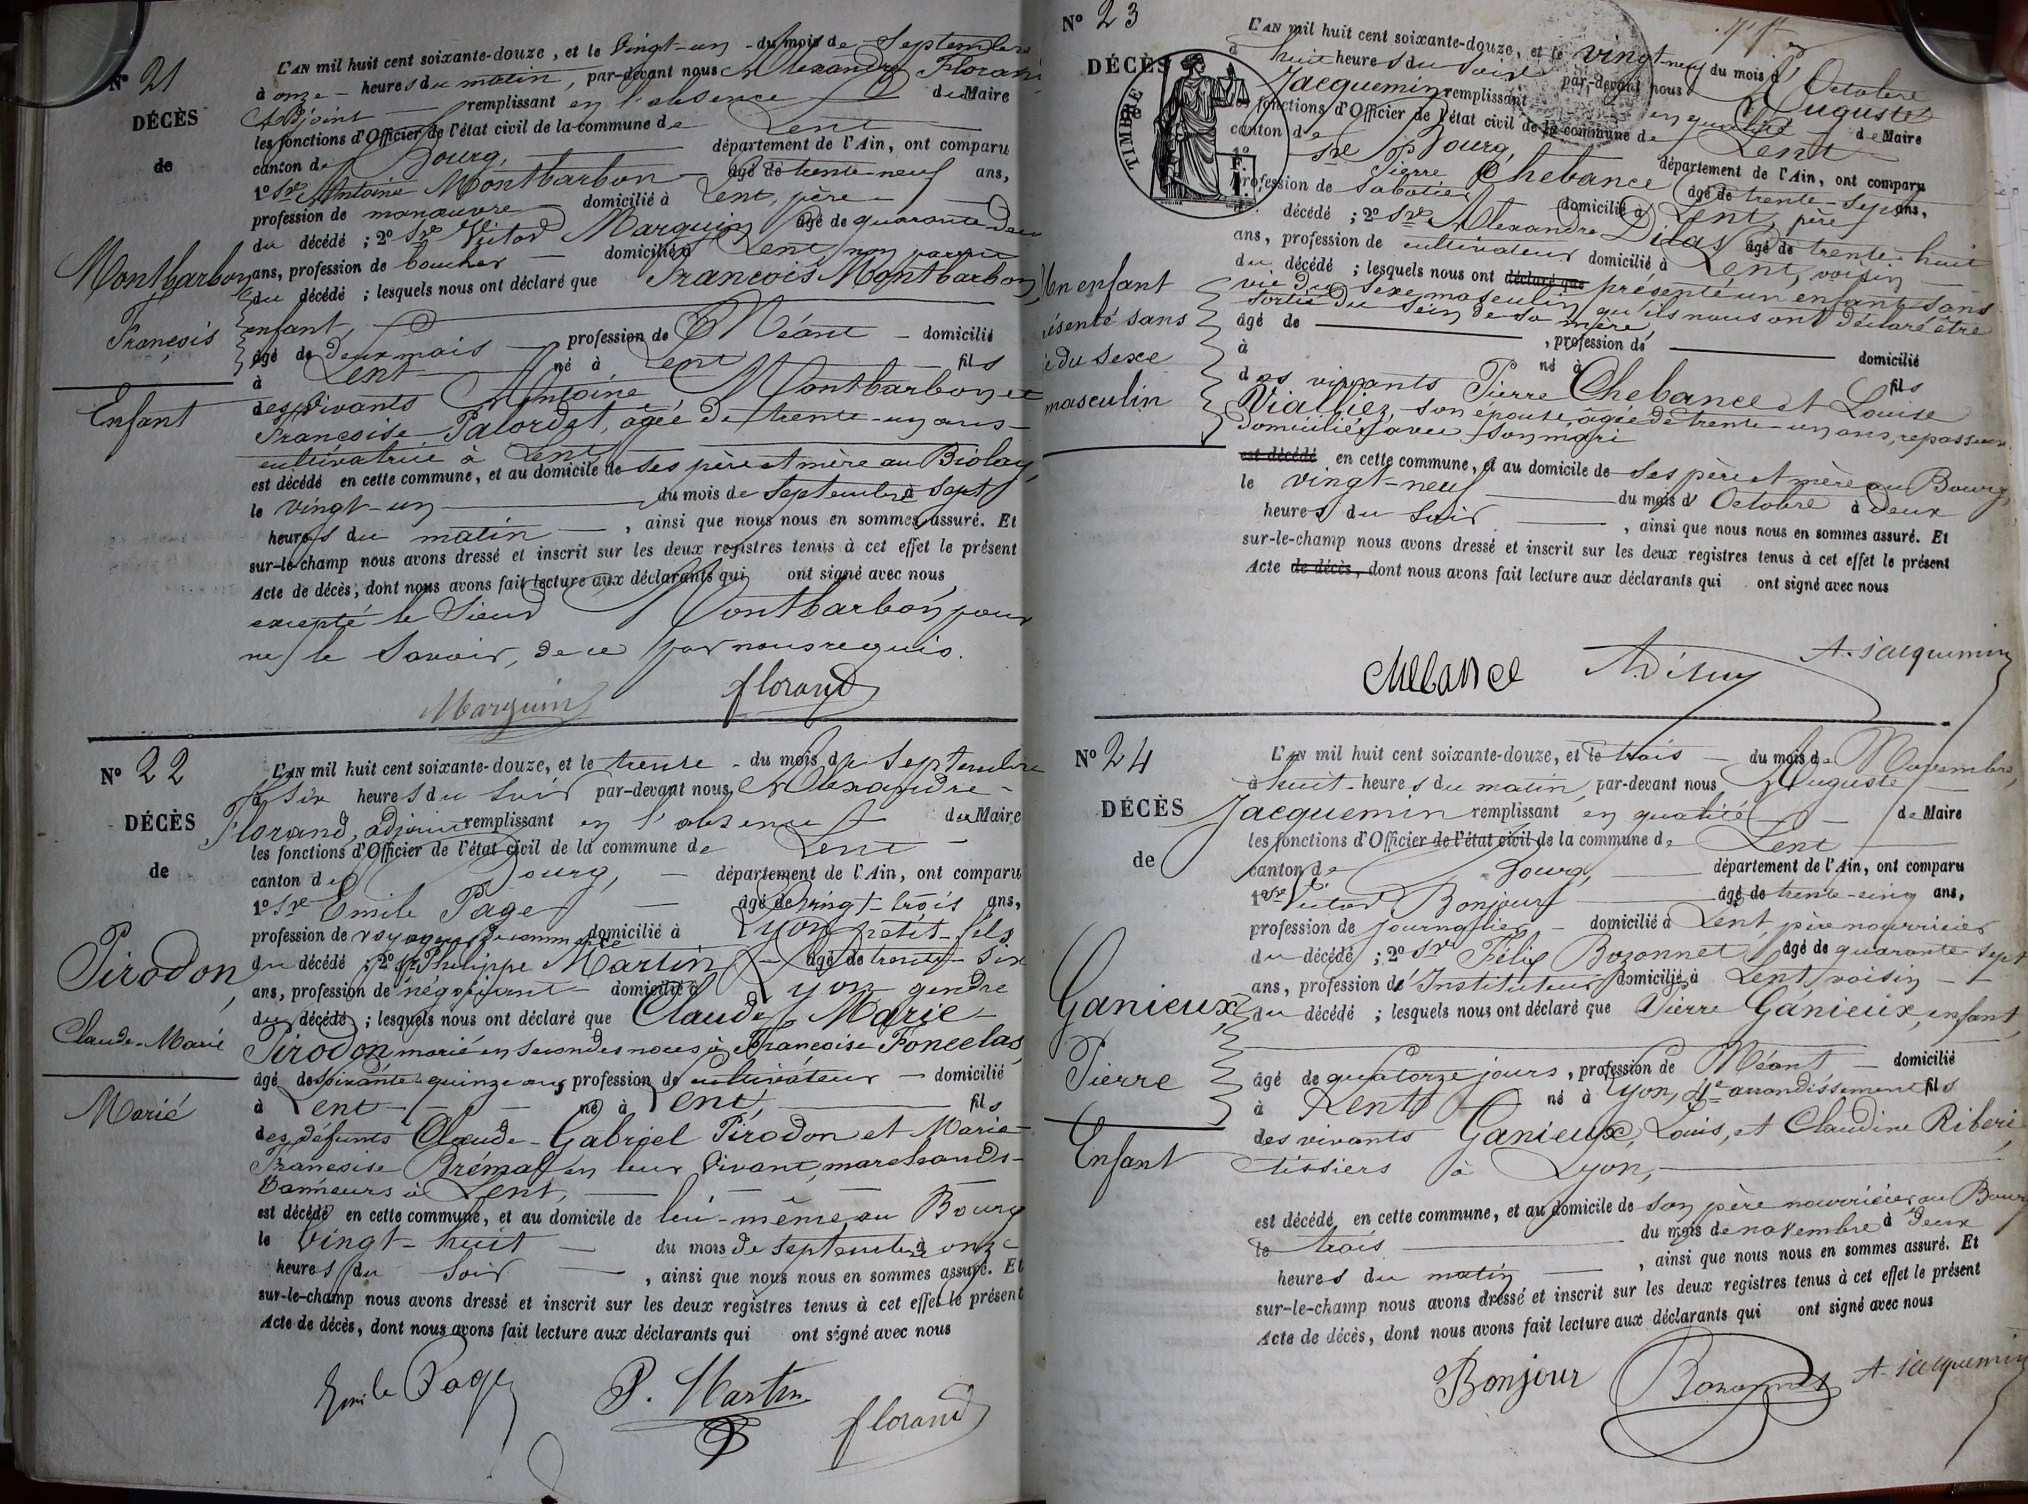 Nº 21
DÉCÈS
de
Montbarbon
François
Enfant
L'AN mil huit cent soixante-douze, et le vingt-un du mois de Septembre
à onze heures du matin, par-devant nous Alexandre Florand
Adjoint remplissant en l'absence du Maire
les fonctions d'Officier de l'état civil de la commune de Lent
canton de Bourg, département de l'Ain, ont comparu
1º Sr Antoine Montbarbon âgé de trente-neuf ans,
profession de manœuvre domicilié à Lent, père
du décédé ; 2º Sr Victor Marguin âgé de quarante deux
ans, profession de boucher domicilié à Lent, non parent
du décédé ; lesquels nous ont déclaré que François Montbarbon,
enfant,
âgé de deux mois profession de Néant domicilié
à Lent né à Lent fils
des vivants Antoine Montbarbon et
Françoise Palordet, âgée de trente-un ans
cultivatrice à Lent
est décédé en cette commune, et au domicile de ses père et mère au Biolay,
le vingt-un du mois de septembre à sept
heures du matin, ainsi que nous nous en sommes assuré. Et
sur-le-champ nous avons dressé et inscrit sur les deux registres tenus à cet effet le présent
Acte de décès, dont nous avons fait lecture aux déclarants qui ont signé avec nous
excepté le Sieur Montbarbon, pour
ne le savoir, de ce par nous requis.
Marguin florand
Nº 22
DÉCÈS
de
Pirodon,
Claude-Marie
Marié
L'AN mil huit cent soixante-douze, et le trente du mois de Septembre
à six heures du soir par-devant nous Alexandre
Florand, adjoint remplissant en l'absence du Maire
les fonctions d'Officier de l'état civil de la commune de Lent
canton de Bourg, département de l'Ain, ont comparu
1º Sr Emile Page âgé de vingt-trois ans,
profession de voyageur de commerce domicilié à Lyon petit-fils
du décédé ; 2º Sr Philippe Martin âgé de trente-six
ans, profession de négociant domicilié à Lyon gendre
du décédé ; lesquels nous ont déclaré que Claude Marie
Pirodon marié en secondes noces à Françoise Foncelas,
âgé de soixante-quinze ans profession de cultivateur domicilié
à Lent né à Lent, fils
des défunts Claude-Gabriel Pirodon et Marie-
Françoise Brémal en leur vivant, marchands-
tanneurs à Lent,
est décédé en cette commune, et au domicile de lui-même au Bourg
le vingt-huit du mois de septembre à onze
heures du soir, ainsi que nous nous en sommes assuré. Et
sur-le-champ nous avons dressé et inscrit sur les deux registres tenus à cet effet le présent
Acte de décès, dont nous avons fait lecture aux déclarants qui ont signé avec nous
Emile Page P. Martin florand
Nº 23
DÉCÈS
de
TIMBRE
Un enfant
présenté sans
vie du sexe
masculin
L'AN mil huit cent soixante-douze, et le vingt neuf du mois d'Octobre
à huit heures du soir par-devant nous Auguste
Jacquemin remplissant en qualité de Maire
les fonctions d'Officier de l'état civil de la commune de Lent
canton de Bourg, département de l'Ain, ont comparu
1º Sr Pierre Chebance âgé de trente-sept ans,
profession de sabotier domicilié à Lent, père
du décédé ; 2º Sr Alexandre Dilas âgé de trente-huit
ans, profession de cultivateur domicilié à Lent, voisin
du décédé ; lesquels nous ont déclaré que présenté un enfant sans
vie du sexe masculin, qu'ils nous ont déclaré être
sortie du sein de sa mère,
âgé de , profession de domicilié
à né à fils
des vivants Pierre Chebance et Louise
Vialliez, son épouse, âgée de trente-un ans, repasseuse
domiciliée avec son mari
est décédé en cette commune, et au domicile de ses père et mère au Bourg,
le vingt-neuf du mois d'Octobre à deux
heures du soir, ainsi que nous nous en sommes assuré. Et
sur-le-champ nous avons dressé et inscrit sur les deux registres tenus à cet effet le présent
Acte de décès, dont nous avons fait lecture aux déclarants qui ont signé avec nous
Chebance A. Jacquemin
Nº 24
DÉCÈS
de
Ganieux,
Pierre
Enfant
L'AN mil huit cent soixante-douze, et le trois du mois de Novembre,
à huit heures du matin, par-devant nous Auguste
Jacquemin remplissant en qualité de Maire
les fonctions d'Officier de l'état civil de la commune de Lent
canton de Bourg, département de l'Ain, ont comparu
1º Sr Victor Bonjour âgé de trente-cinq ans,
profession de journalier domicilié à Lent, père nourricier
du décédé ; 2º Sr Félix Bozonnet âgé de quarante sept
ans, profession d'Instituteur domicilié à Lent voisin
du décédé ; lesquels nous ont déclaré que Pierre Ganieux, enfant,
âgé de quatorze jours, profession de Néant domicilié
à Lent né à Lyon, 4e arrondissement fils
des vivants Ganieux, Louis, et Claudine Riberi
tissiers à Lyon,
est décédé en cette commune, et au domicile de son père nourricier, au Bourg
le trois du mois de novembre à deux
heures du matin, ainsi que nous nous en sommes assuré. Et
sur-le-champ nous avons dressé et inscrit sur les deux registres tenus à cet effet le présent
Acte de décès, dont nous avons fait lecture aux déclarants qui ont signé avec nous
Bonjour Bozonnet A. Jacquemin